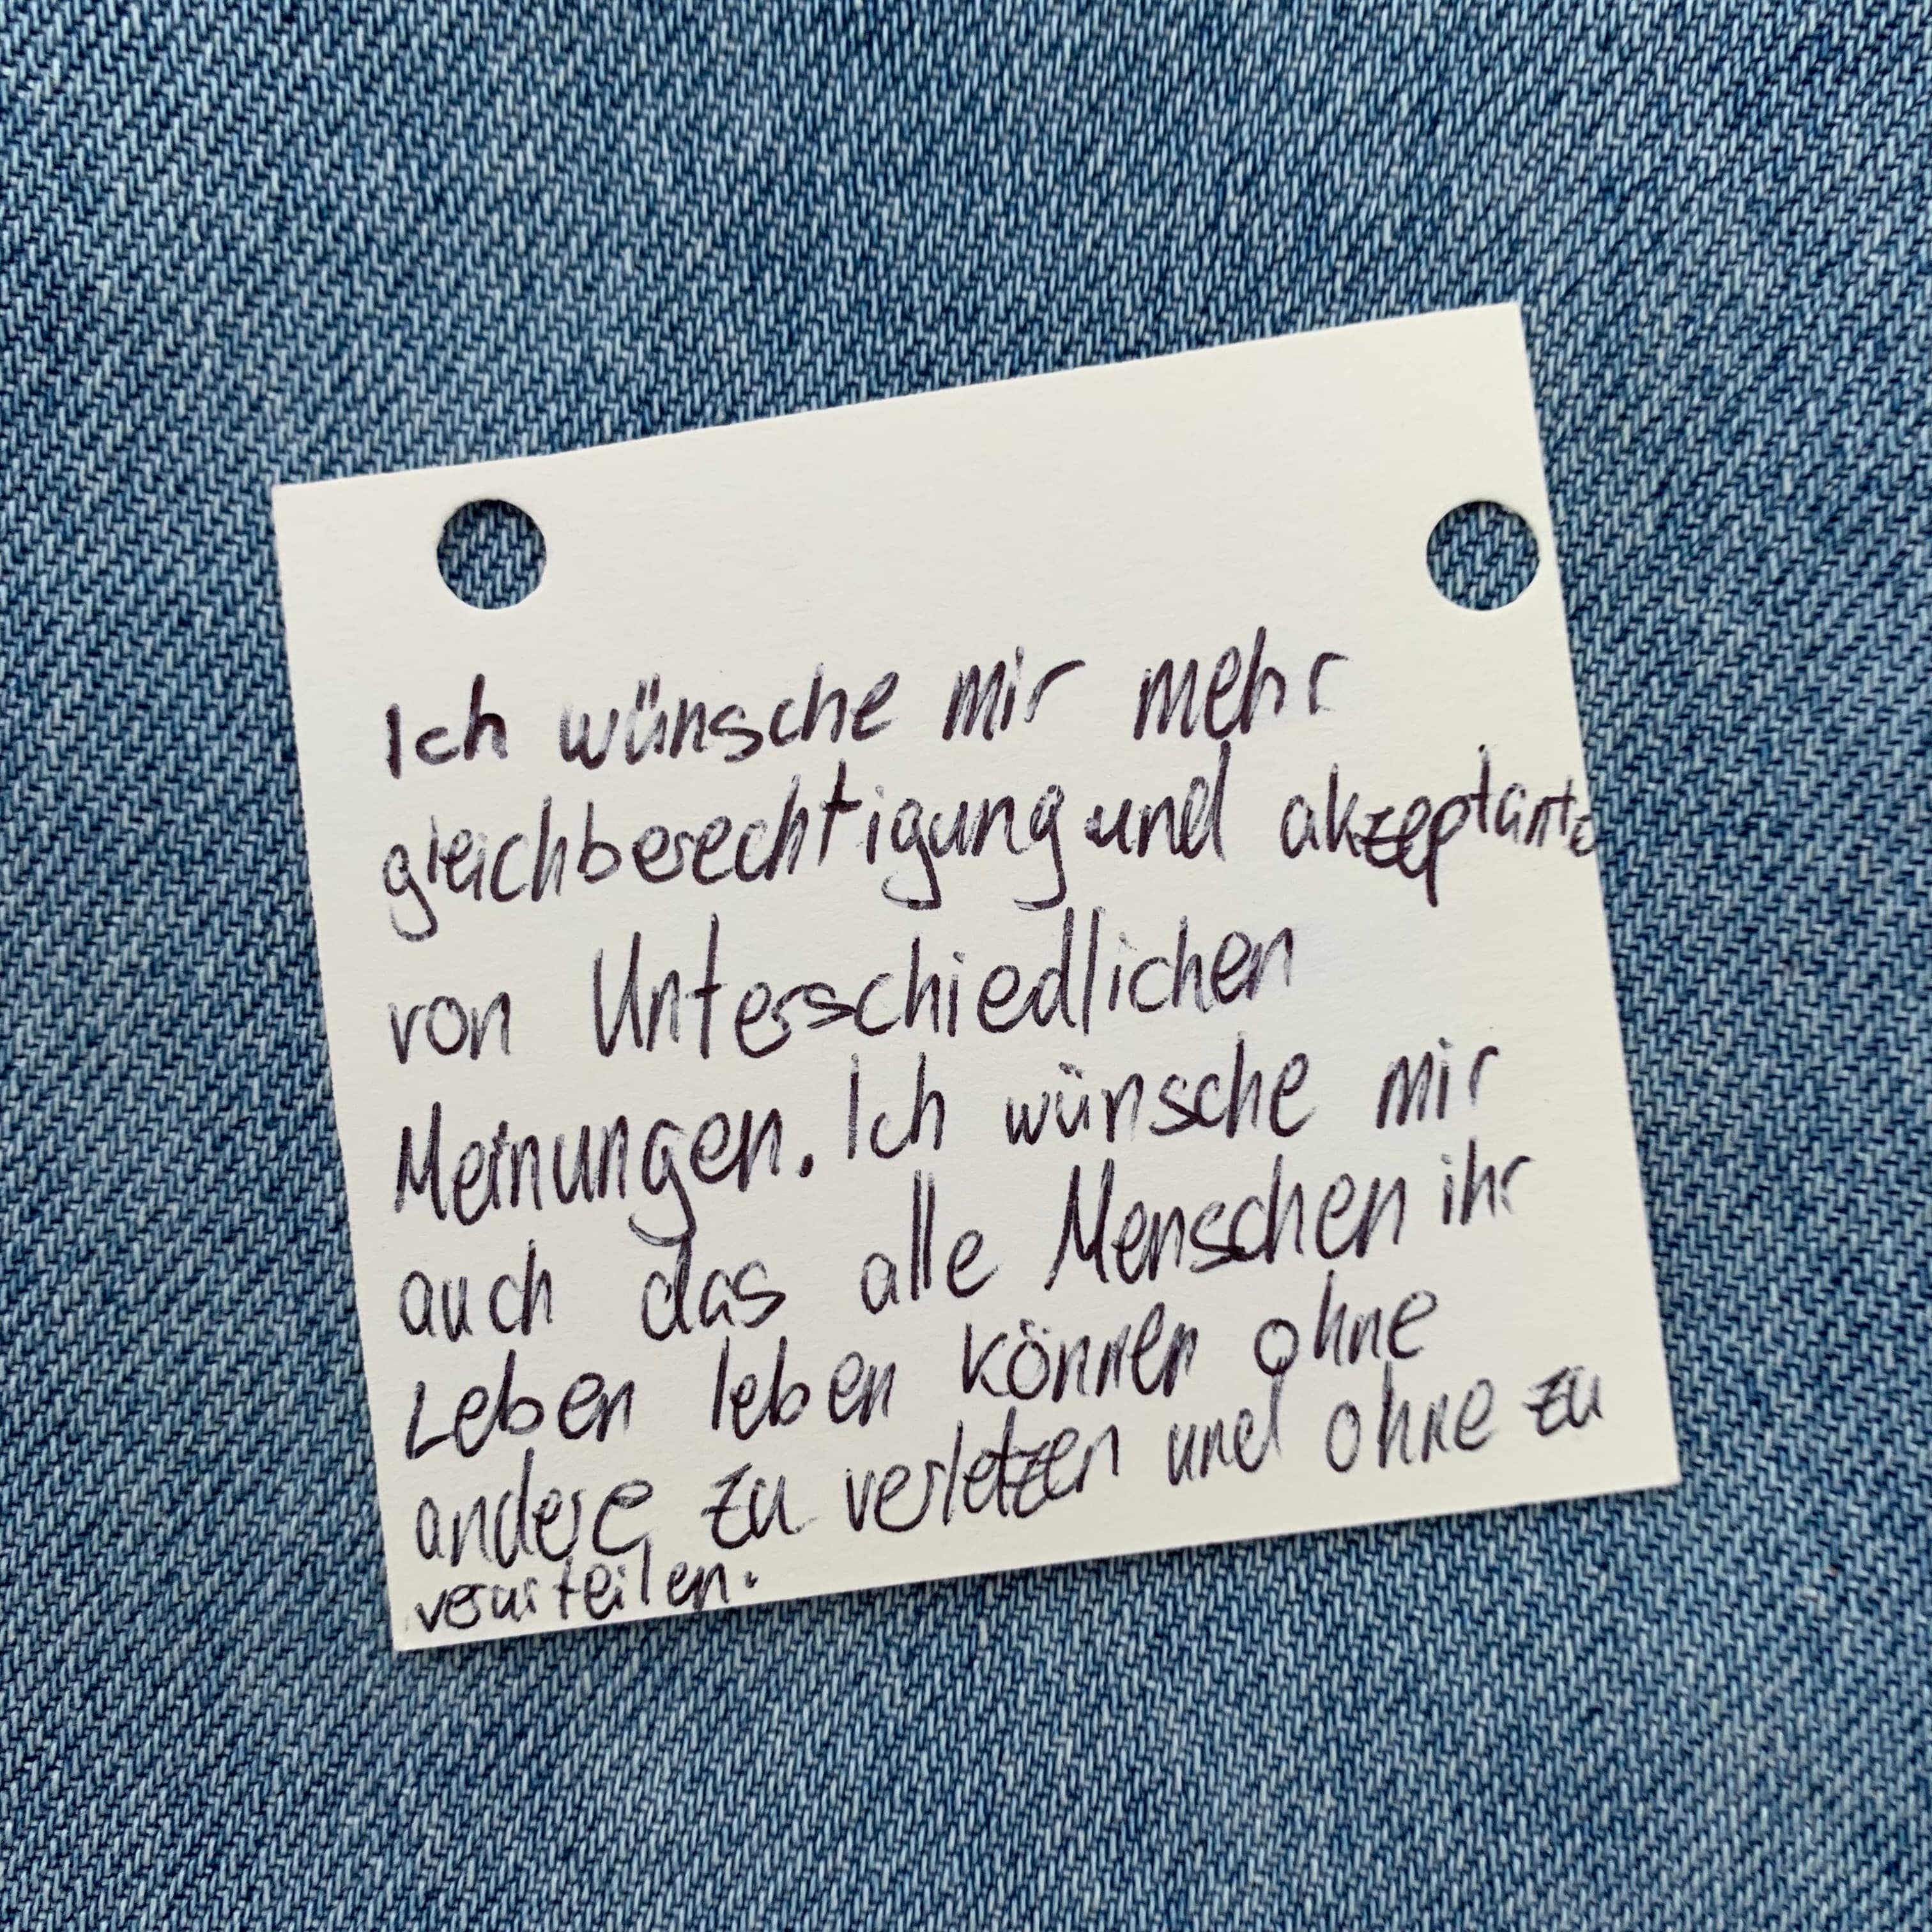 Ich wünsche mir mehr
gleichberechtigung und
von Unterschiedlichen
Meinungen. Ich wünsche mir
auch das alle Menschen ihr
Leben leben können ohne
andere zu verletzen und ohne zu
verurteilen.